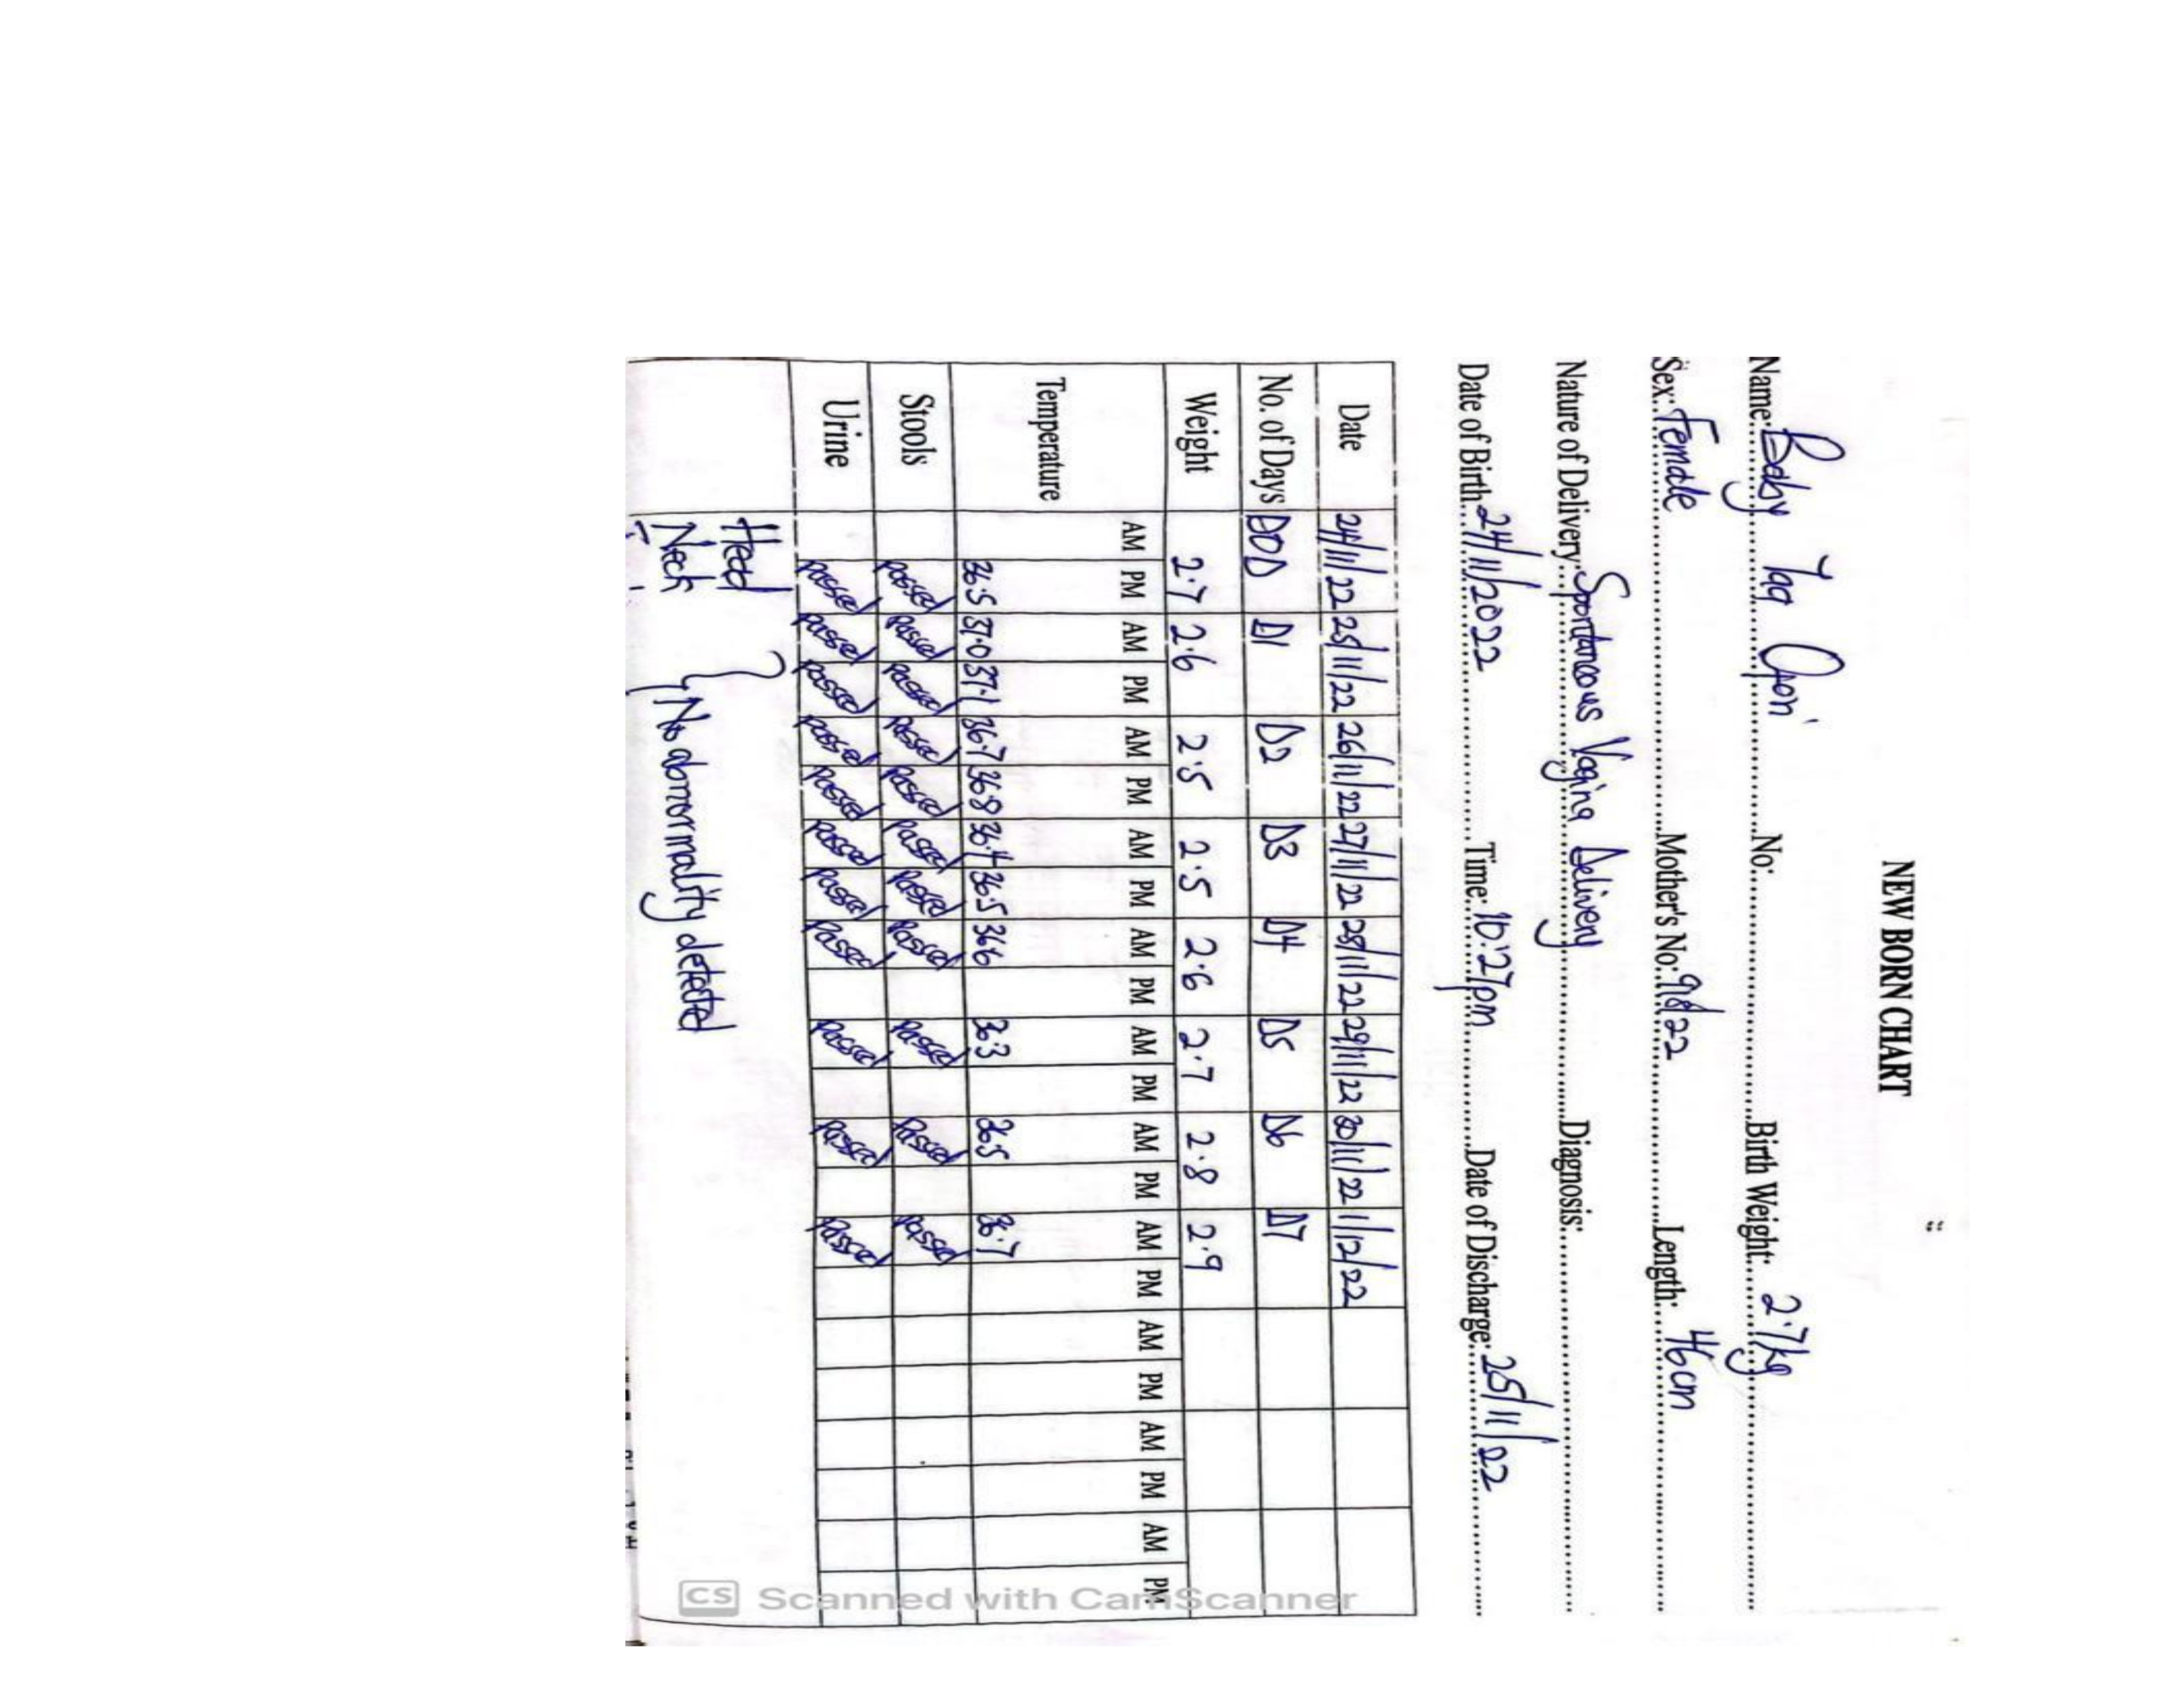 NEW BORN CHART
Name: Baby Yaa Opon No: Birth Weight: 2.7kg
Sex: Female Mother's No: 98/22 Length: 46cm
Nature of Delivery: Spontaneous Vagina Delivery Diagnosis:
Date of Birth: 24/11/2022 Time: 10:27pm Date of Discharge: 25/11/22
Date 24/11/22 25/11/22 26/11/22 27/11/22 28/11/22 29/11/22 30/11/22 1/12/22
No. of Days DOD D1 D2 D3 D4 D5 D6 D7
Weight 2.7 2.6 2.5 2.5 2.6 2.7 2.8 2.9
AM PM AM PM AM PM AM PM AM PM AM PM AM PM AM PM AM PM AM PM AM PM
Temperature 36.5 37.0 37.1 36.7 36.8 36.4 36.5 36.6 36.3 36.5 36.7
Stools passed passed passed passed passed passed passed passed passed passed passed
Urine passed passed passed passed passed passed passed passed passed passed passed
Head
Neck } No abnormality detected
CS Scanned with CamScanner